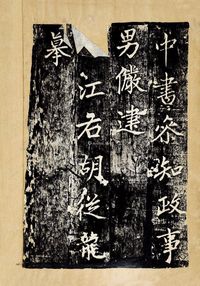 中書叅知政事
男儼建
江右胡從龍
摹